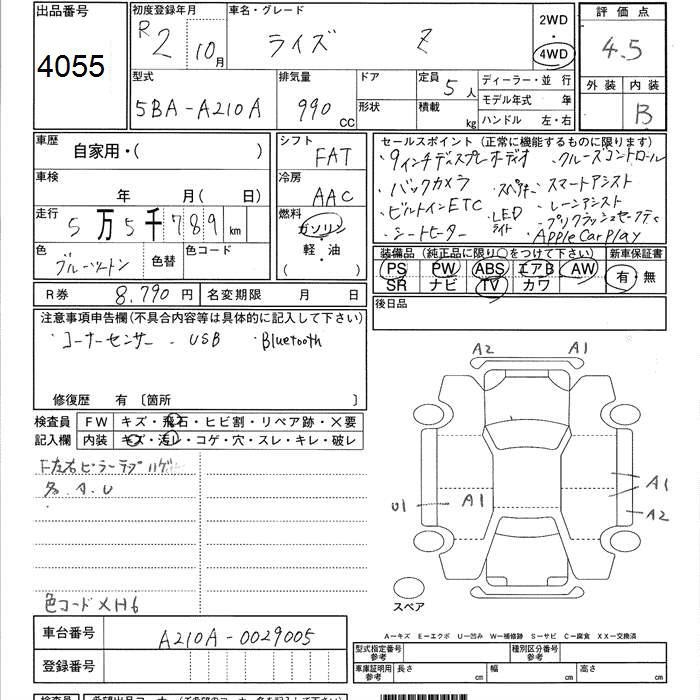 出品番号
4055
初度登録年月
R2 10月
車名・グレード
ライズ Z
2WD
・
4WD
評価点
4.5
外装 内装
B
型式
5BA-A210A
排気量
990 CC
ドア
形状
定員 5人
積載 kg
ディーラー・並行
モデル年式 年
ハンドル 左・右
車歴
自家用・( )
車検
年 月( 日)
走行
5万5千789km
色
ブルーツートン
色替
色コード
シフト
FAT
冷房
AAC
燃料
ガソリン
・
軽・油
( )
セールスポイント(正常に機能するものに限ります)
・9インチディスプレイオーディオ ・クルーズコントロール
・バックカメラ ・スペアキー ・スマートアシスト
・ビルトインETC ・LEDライト ・レーンアシスト
・シートヒーター ・プリクラッシュセーフティ
・Apple Carplay
装備品(純正品に限り○をつけて下さい)
PS PW ABS エアB AW
SR ナビ TV カワ
新車保証書
有・無
後日品
R券 8,790円
名変期限 月 日
注意事項申告欄(不具合内容等は具体的に記入して下さい)
・コーナーセンサー ・USB ・Bluetooth
修復歴 有 〔箇所 〕
検査員
記入欄
FW キズ・飛石・ヒビ割・リペア跡・X要
内装 キズ・汚レ・コゲ・穴・スレ・キレ・破レ
F左右ピラーテープハゲ
多 A.U
色コード XH6
A2 A1
U1 A1 A1
A2
スペア
車台番号
A210A-0029005
登録番号
A-キズ E-エクボ U-凹み W-補修跡 S-サビ C-腐食 XX-交換済
型式指定番号
参考
種別区分番号
参考
車庫証明用
参考
長さ cm 幅 cm 高さ cm
検査員
希望出品コーナー名